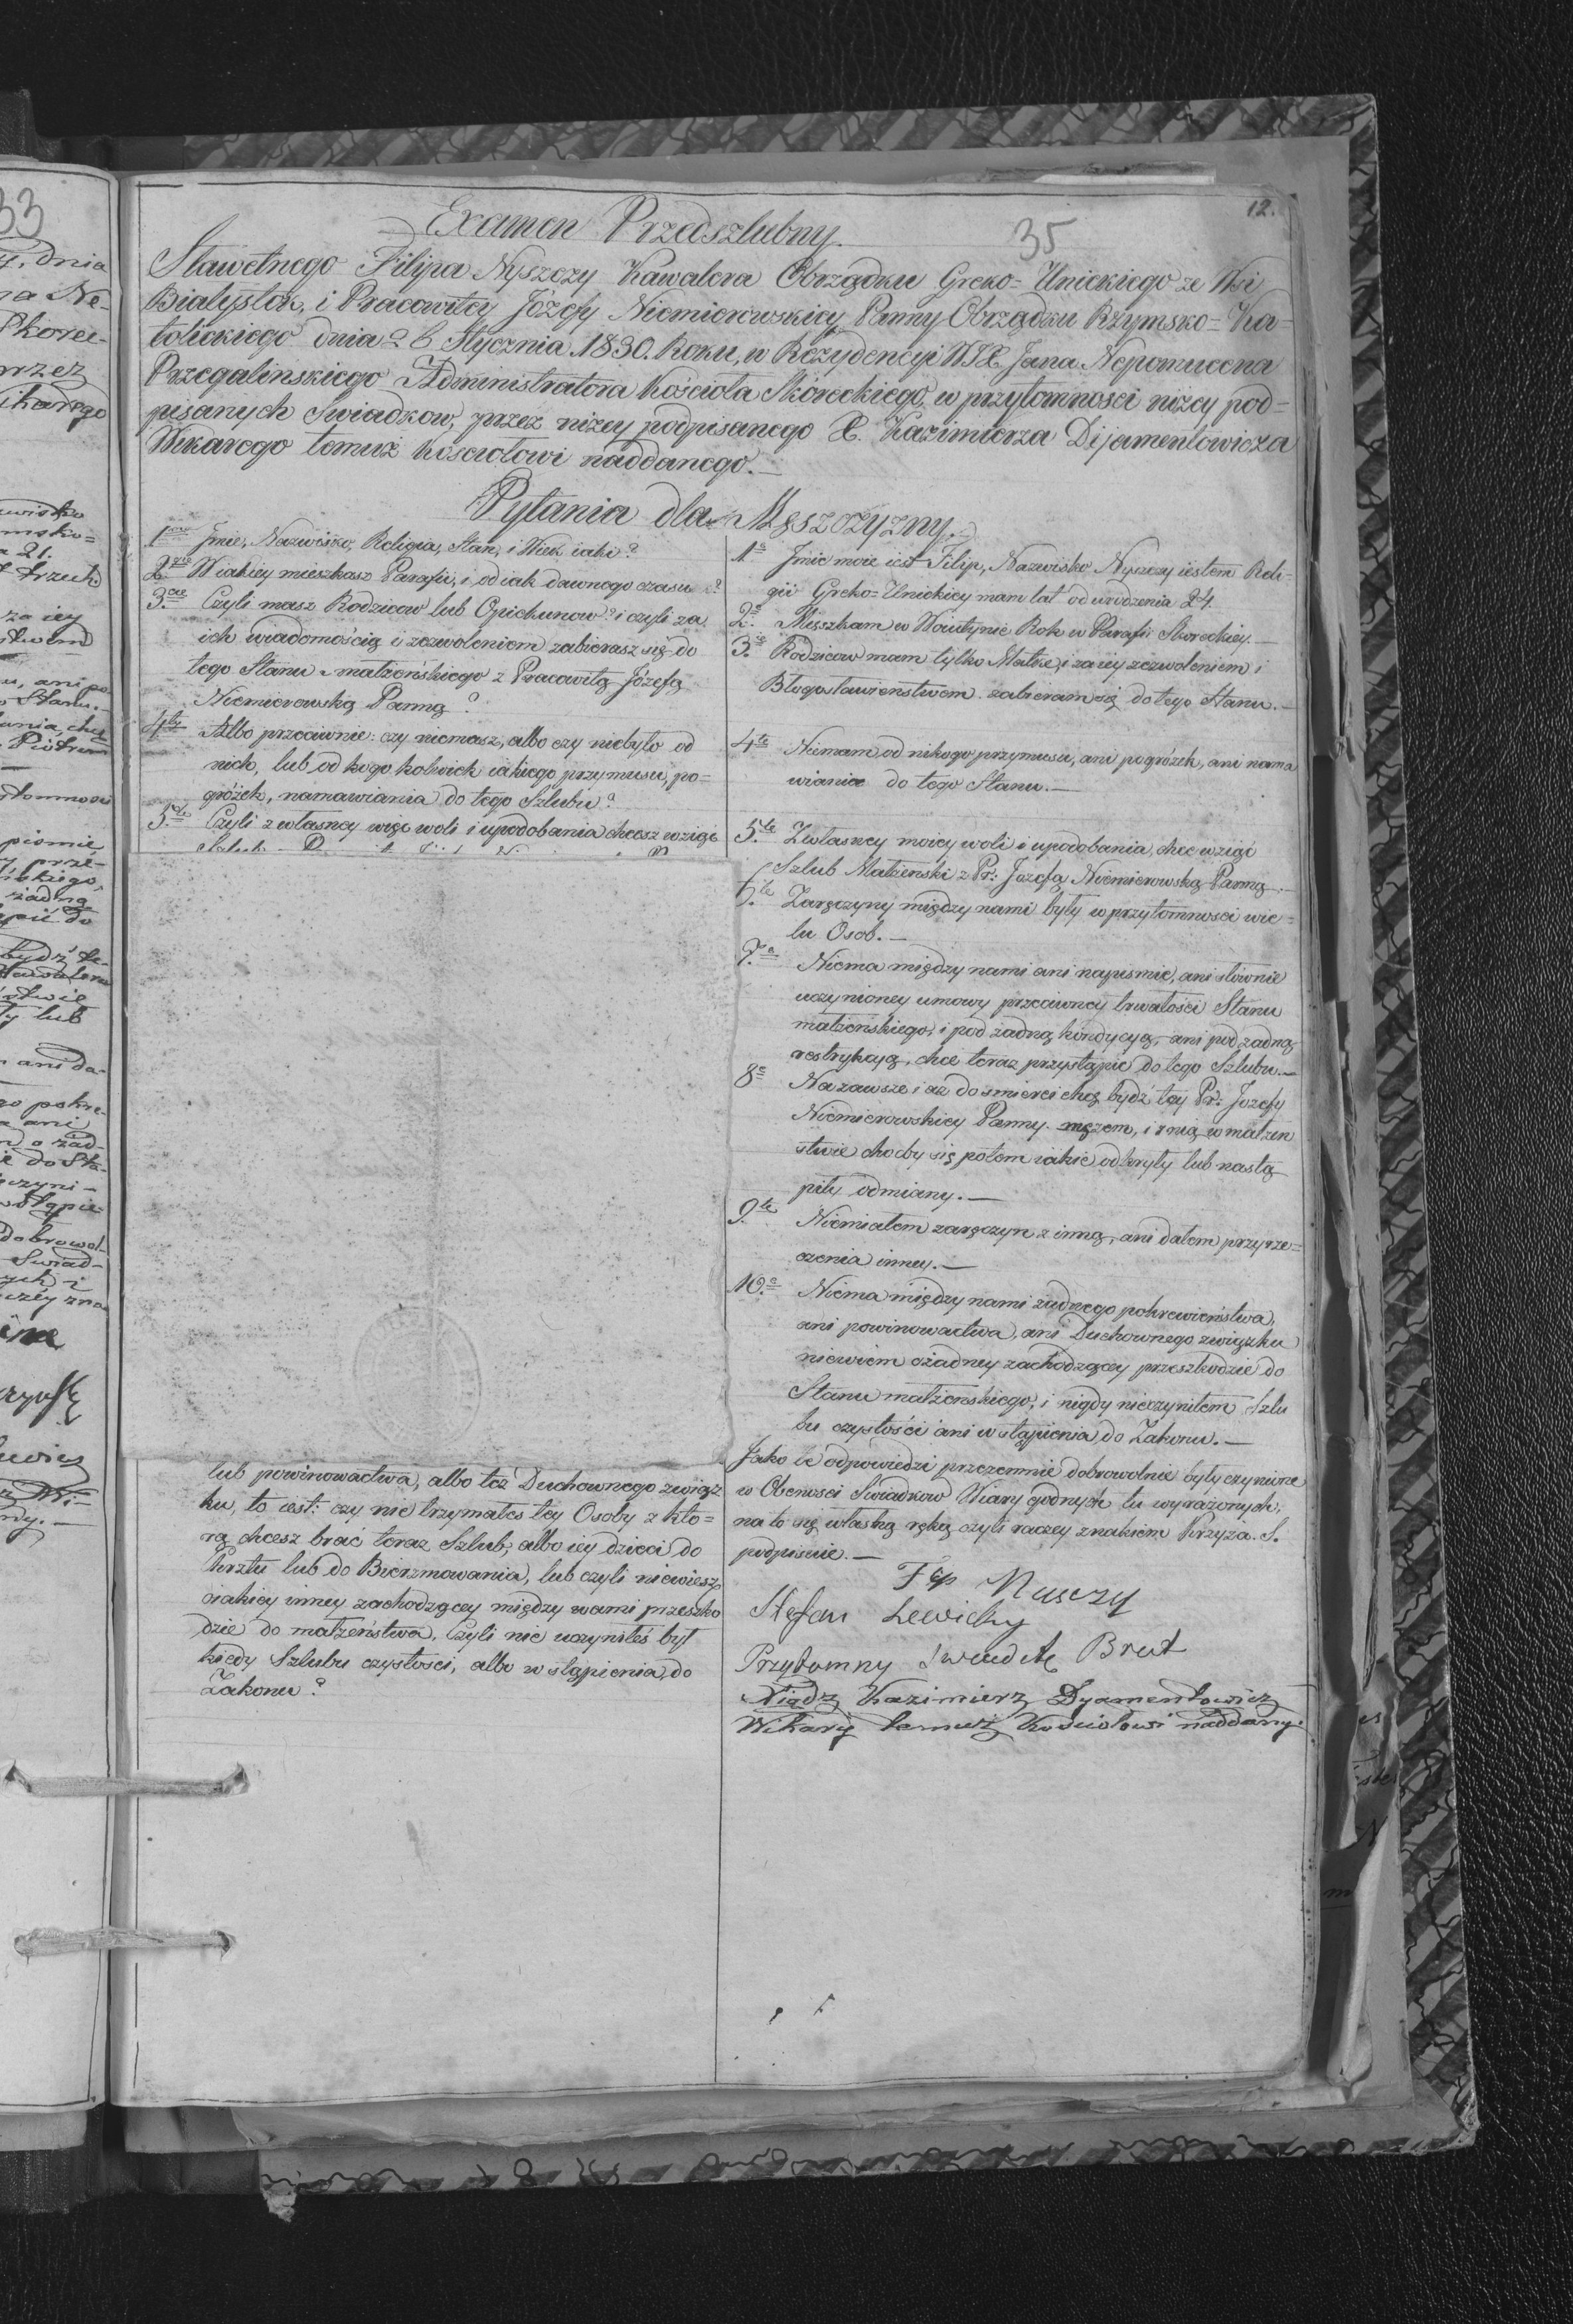 12.
35
Examen Przedszlubny.
Sławetnego Filipa Nyszczy Kawalera Obrządku Greko=Unickiego ze Wsi
Białystok, i Pracowitey Józefy Niemierowskiey Panny Obrządku Rzymsko=Ka=
tolickiego dnia 26 Stycznia 1830. Roku, w Rezydencyi WJX Jana Nepomucena
Przegalinskiego Administratora Kościoła Skóreckiego, w przytomnosci niżey pod=
pisanych Swiadkow, przez niżey podpisanego X. Kazimierza Dijamentowicza
Wikarego temuż Kościołowi naddanego.
Pytania dla Męszczyzny.
1mo Jmie, Nazwisko, Religia, Stan, i Wiek iaki?
2. Wiakiey mieszkasz Parafii, i od iak dawnego czasu?
3. Czyli masz Rodzicow lub Opiekunow? i czyli za
ich wiadomością i zezwoleniem zabierasz się do
tego Stanu małzeńskiego z Pracowitą Józefą
Niemierowską Panną?
4te Albo przeciwnie: czy niemasz, albo czy niebyło od
nich, lub od kogo kolwiek iakiego przymusu, po=
gróżek, namawiania do tego Szlubu?
5te Czyli z własney więc woli i upodobania chcesz wziąć
lub powinowactwa, albo też Duchownego związ
ku, to iest: czy nie trzymałeś tey Osoby z kto=
rą chcesz brać teraz Szlub, albo iey dzieci do
Krztu lub do Bierzmowania, lub czyli niewiesz
oiakiey inney zachodzącey między wami przeszko
dzie do małzeństwa, Czyli nie uczyniłeś był
kiedy Szlubu czystosci, albo wstąpienia do
Zakonu?
1a Jmie moie iest Filip, Nazwisko Nyszczy iestem Reli-
gii Greko=Unickiey mam lat od urodzenia 24.
2a Mięszkam w Woiutynie Rok w Parafii Skoreckiey.—
3. Rodzicow mam tylko Matkę, i za iey zezwoleniem i
Błogosławieństwem zabieram się do tego Stanu.—
4te Niemam od nikogo przymusu, ani pogróżek, ani nama
wiania do tego Stanu.—
5te Zwłasney moiey woli i upodobania, chcę wziąć
Szlub Małżenski z Pr: Jozefą Niemierowską Panną.—
6te Zaręczyny między nami były w przytomnosci wie=
lu Osob.—
7.a Niema między nami ani napismie, ani słownie
uczynioney umowy przeciwney trwałości Stanu
małżeńskiego, i pod żadną kondycyą, ani pod żadną
restrykcyą, chcę teraz przystąpić do tego Szlubu.—
8a Na zawsze i aż do smierci chcę bydź tey Pr: Jozefy
Niemierowskiey Panny mężem, i z nią w małżen
stwie choćby się potem iakie odkryły lub nastą
piły odmiany.—
9.te Niemiałem zaręczyn z inną, ani dałem przyrze=
czenia inney.—
10.a Niema między nami żadnego pokrewieństwa,
ani powinowactwa, ani Duchownego związku
niewiem ożadney zachodzącey przeszkodzie do
Stanu małżenskiego, i nigdy nieczyniłem Szlu
bu czystości ani wstąpienia do Zakonu.—
Jako te odpowiedzi przezemnie dobrowolnie były czynione
w Obecnosci Swiadkow Wiary godnych tu wyrażonych;
na to się własną ręką czyli raczey znakiem Krzyża S.
podpisuie.—
Nyszczy
Stefan Lewicky
Przytomny Brut
Xiądz Kazimierz Dyamentowicz
Wikary temuż Kościołowi naddany.